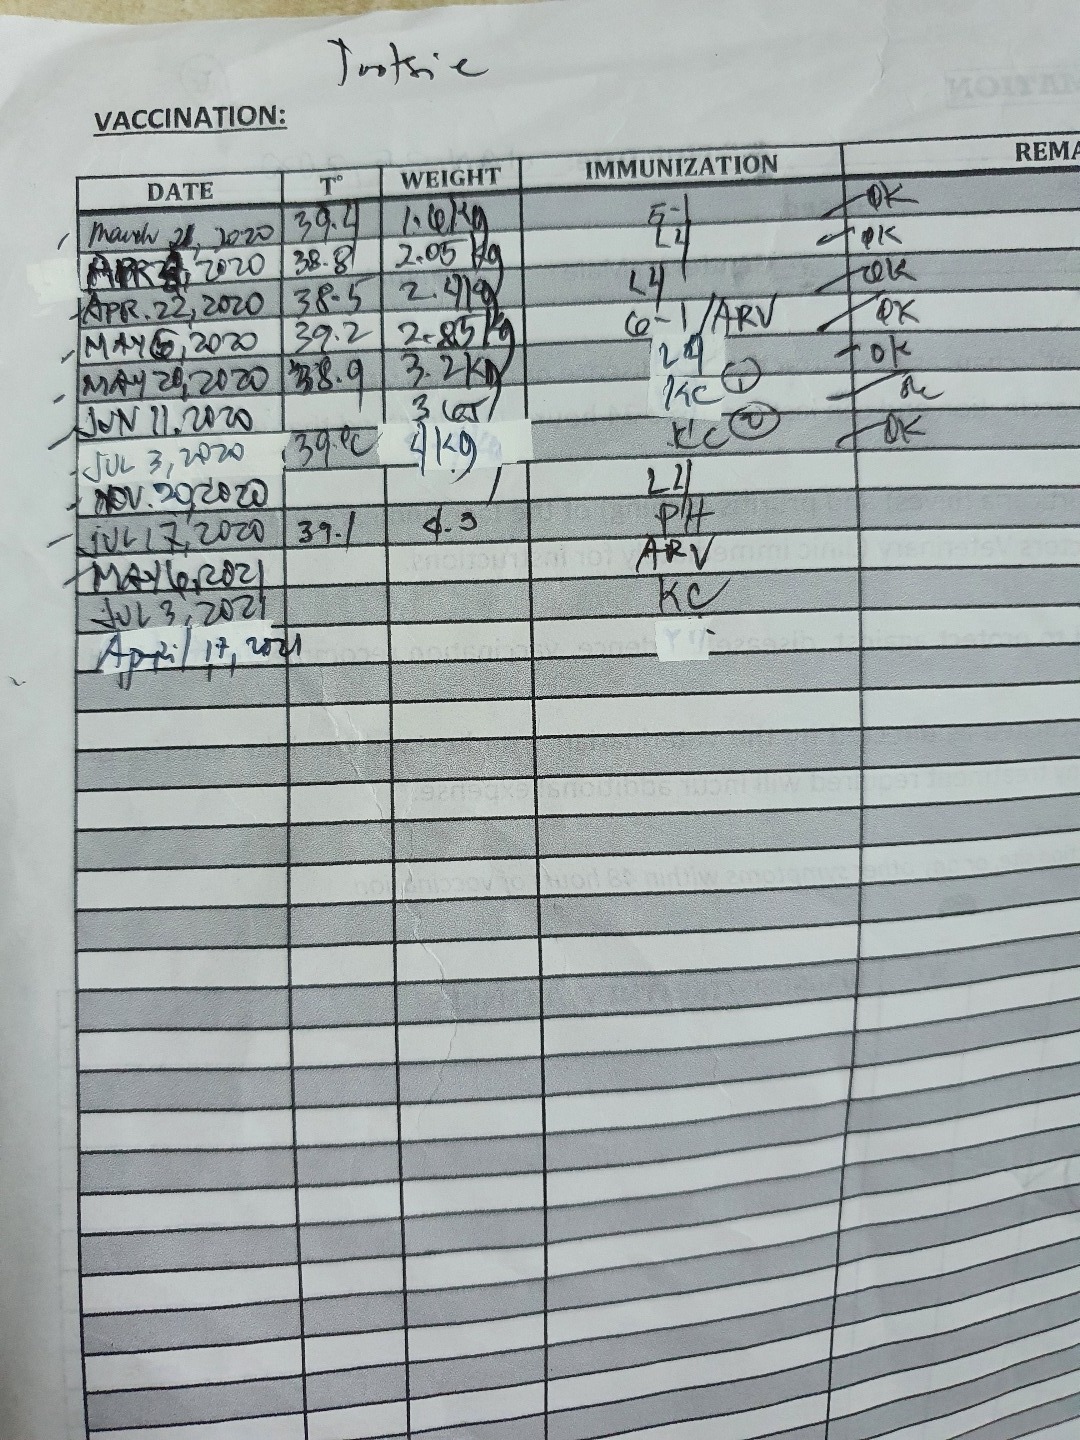 Tootsie
VACCINATION:
DATE T° WEIGHT IMMUNIZATION REMA
March 21, 2020 39.4 1.6kg 5-1 OK
APR 2020 38.8 2.05 kg L4 OK
APR. 22, 2020 38.5 2.4kg L4 OK
MAY 6, 2020 39.2 2.85kg 6-1/ARV OK
MAY 20, 2020 38.9 3.2kg L4 OK
JUN 11, 2020 3 KC 1
JUL 3, 2020 39.°C 4kg KC 2 OK
NOV. 20, 2020 L4
JUL 17, 2020 39.1 4.3 PH
MAY 6, 2021 ARV
JUL 3, 2021 KC
April 17, 2021